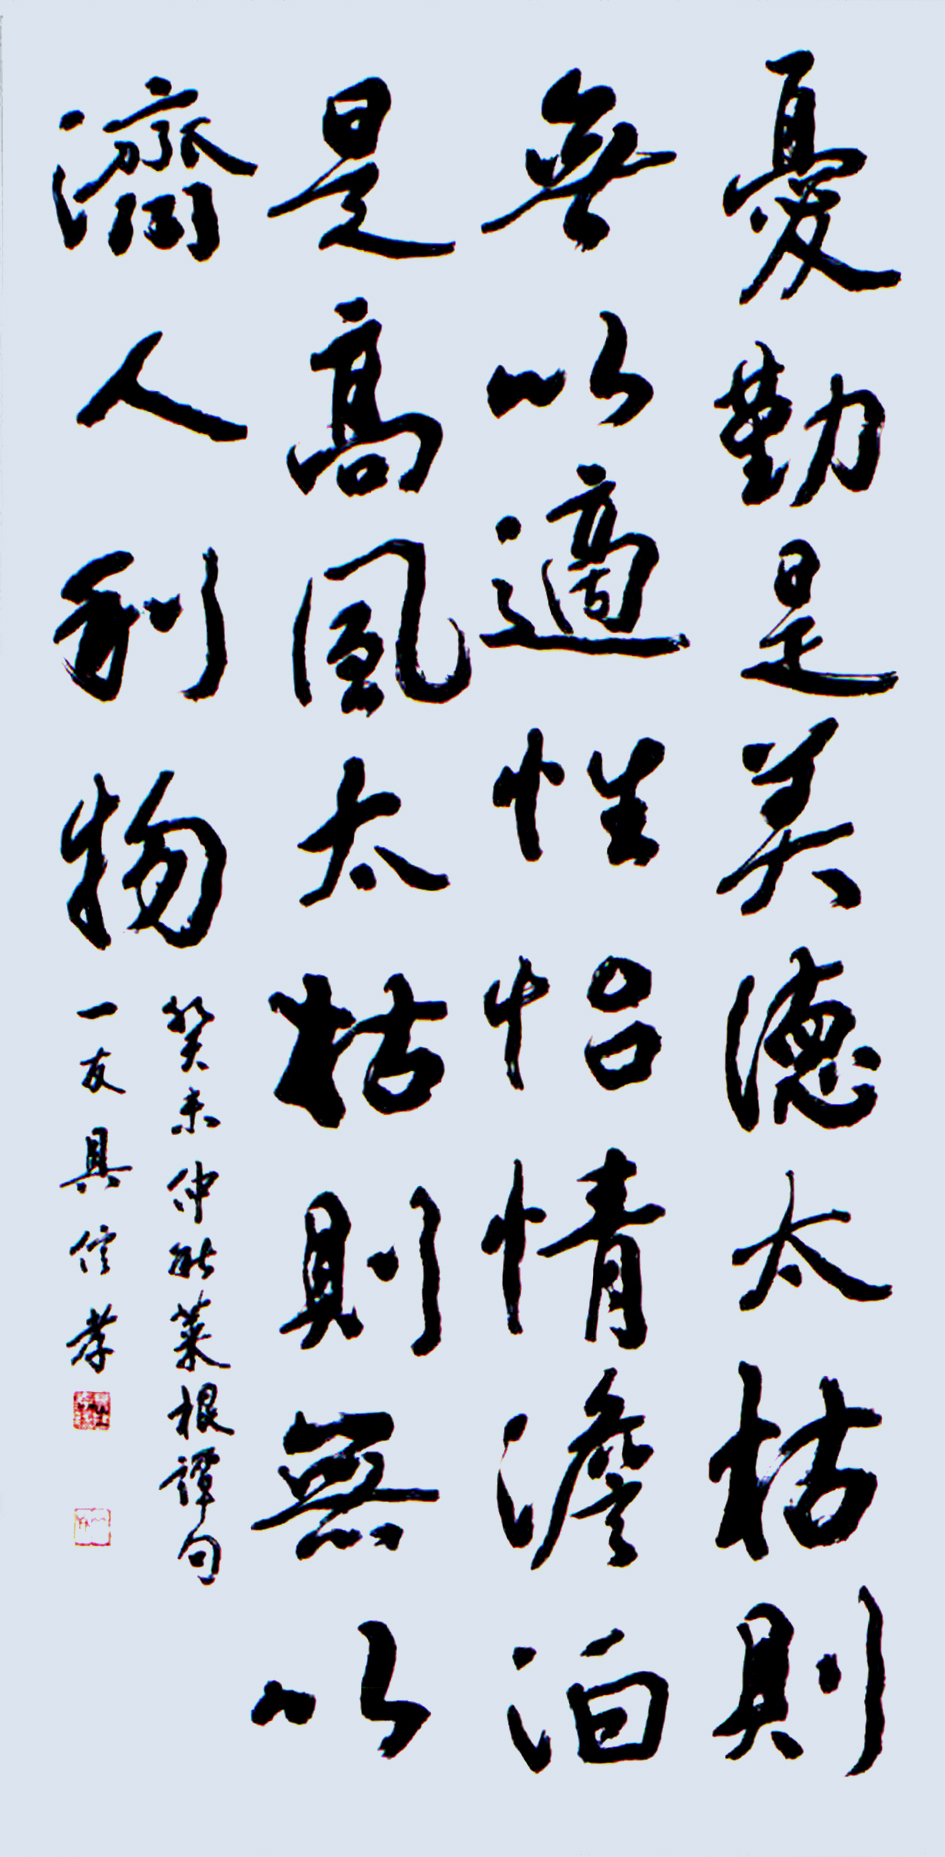 憂勤是美德太枯則
無以適性怡情澹泊
是高風太枯則無以
濟人利物
癸未仲秋菜根譚句
一友具信孝